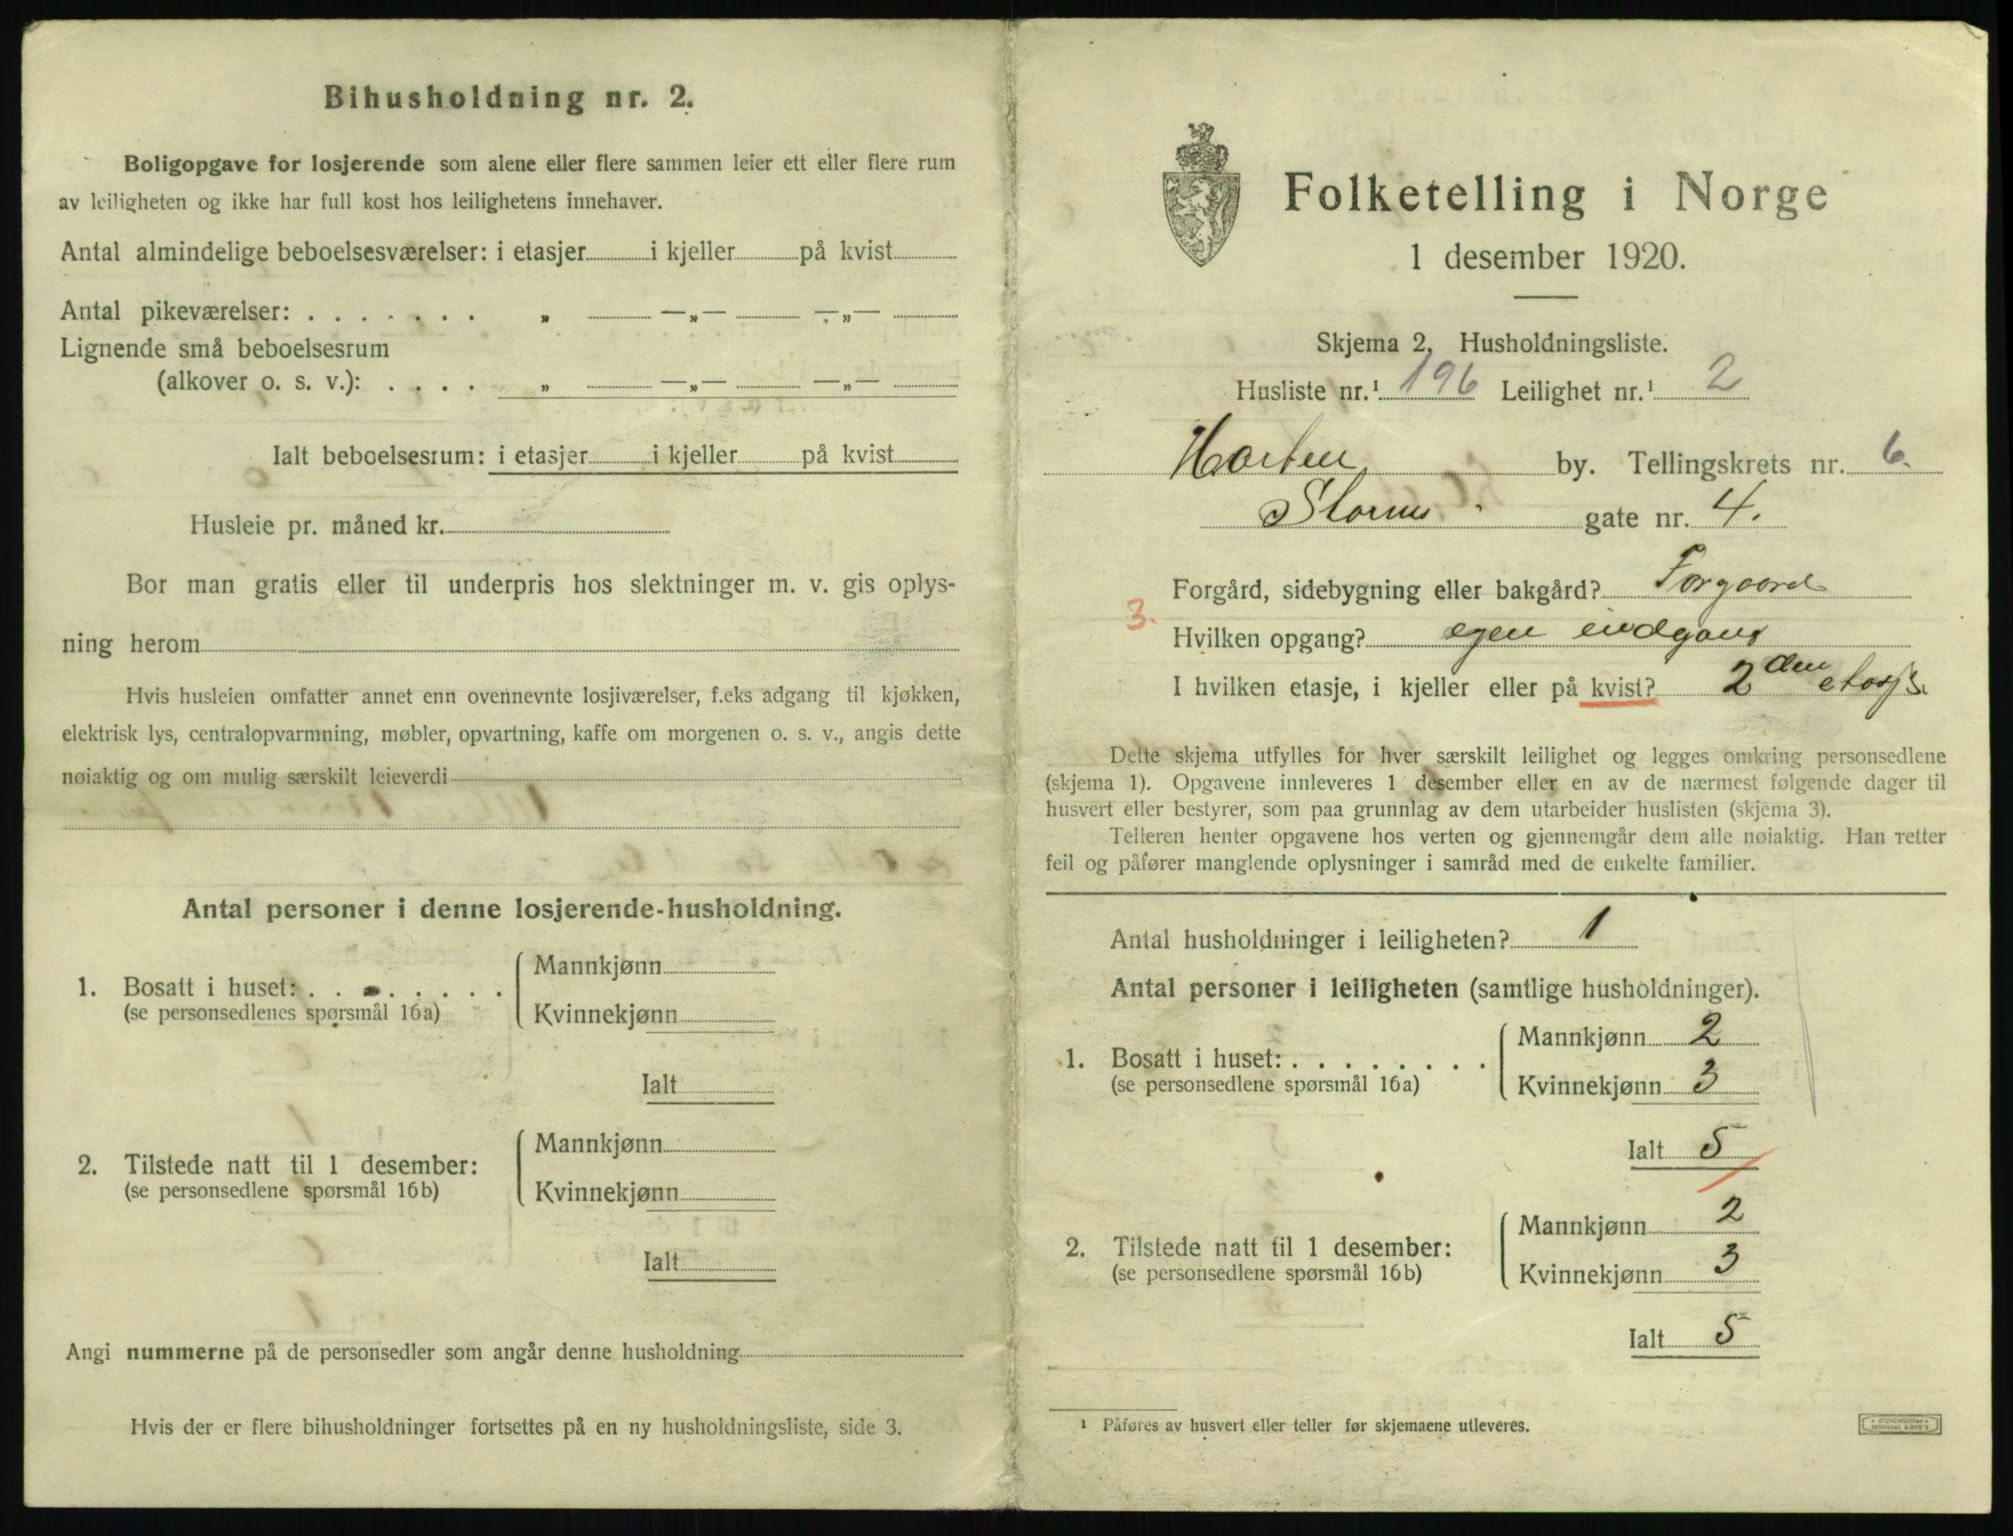 Bihusholdning nr. 2.
Boligopgave for losjerende som alene eller flere sammen leier ett eller flere rum
av leiligheten og ikke har full kost hos leilighetens innehaver.
Antal almindelige beboelsesværelser: i etasjer i kjeller på kvist
Antal pikeværelser: . . . . . . . „ —„— —„—
Lignende små beboelsesrum
(alkover o. s. v.): . . . . „ —„— —„—
Ialt beboelsesrum: i etasjer i kjeller på kvist
Husleie pr. måned kr.
Bor man gratis eller til underpris hos slektninger m. v. gis oplys-
ning herom
Hvis husleien omfatter annet enn ovennevnte losjiværelser, f.eks adgang til kjøkken,
elektrisk lys, centralopvarmning, møbler, opvartning, kaffe om morgenen o. s. v., angis dette
nøiaktig og om mulig særskilt leieverdi
Antal personer i denne losjerende-husholdning.
1. Bosatt i huset: . . . . . . . .
(se personsedlenes spørsmål 16a)
Mannkjønn
Kvinnekjønn
Ialt
2. Tilstede natt til 1 desember:
(se personsedlene spørsmål 16b)
Mannkjønn
Kvinnekjønn
Ialt
Angi nummerne på de personsedler som angår denne husholdning
Hvis der er flere bihusholdninger fortsettes på en ny husholdningsliste, side 3.
Folketelling i Norge
1 desember 1920.
Skjema 2. Husholdningsliste.
Husliste nr.¹ 196 Leilighet nr.¹ 2
Horten by. Tellingskrets nr. 6.
Storms gate nr. 4.
Forgård, sidebygning eller bakgård? Forgaard
3.
Hvilken opgang? egen indgang
I hvilken etasje, i kjeller eller på kvist? 2den etasje.
Dette skjema utfylles for hver særskilt leilighet og legges omkring personsedlene
(skjema 1). Opgavene innleveres 1 desember eller en av de nærmest følgende dager til
husvert eller bestyrer, som paa grunnlag av dem utarbeider huslisten (skjema 3).
Telleren henter opgavene hos verten og gjennemgår dem alle nøiaktig. Han retter
feil og påfører manglende oplysninger i samråd med de enkelte familier.
Antal husholdninger i leiligheten? 1
Antal personer i leiligheten (samtlige husholdninger).
1. Bosatt i huset: . . . . . . . .
(se personsedlene spørsmål 16a)
Mannkjønn 2
Kvinnekjønn 3
Ialt 5
2. Tilstede natt til 1 desember:
(se personsedlene spørsmål 16b)
Mannkjønn 2
Kvinnekjønn 3
Ialt 5
¹ Påføres av husvert eller teller før skjemaene utleveres.